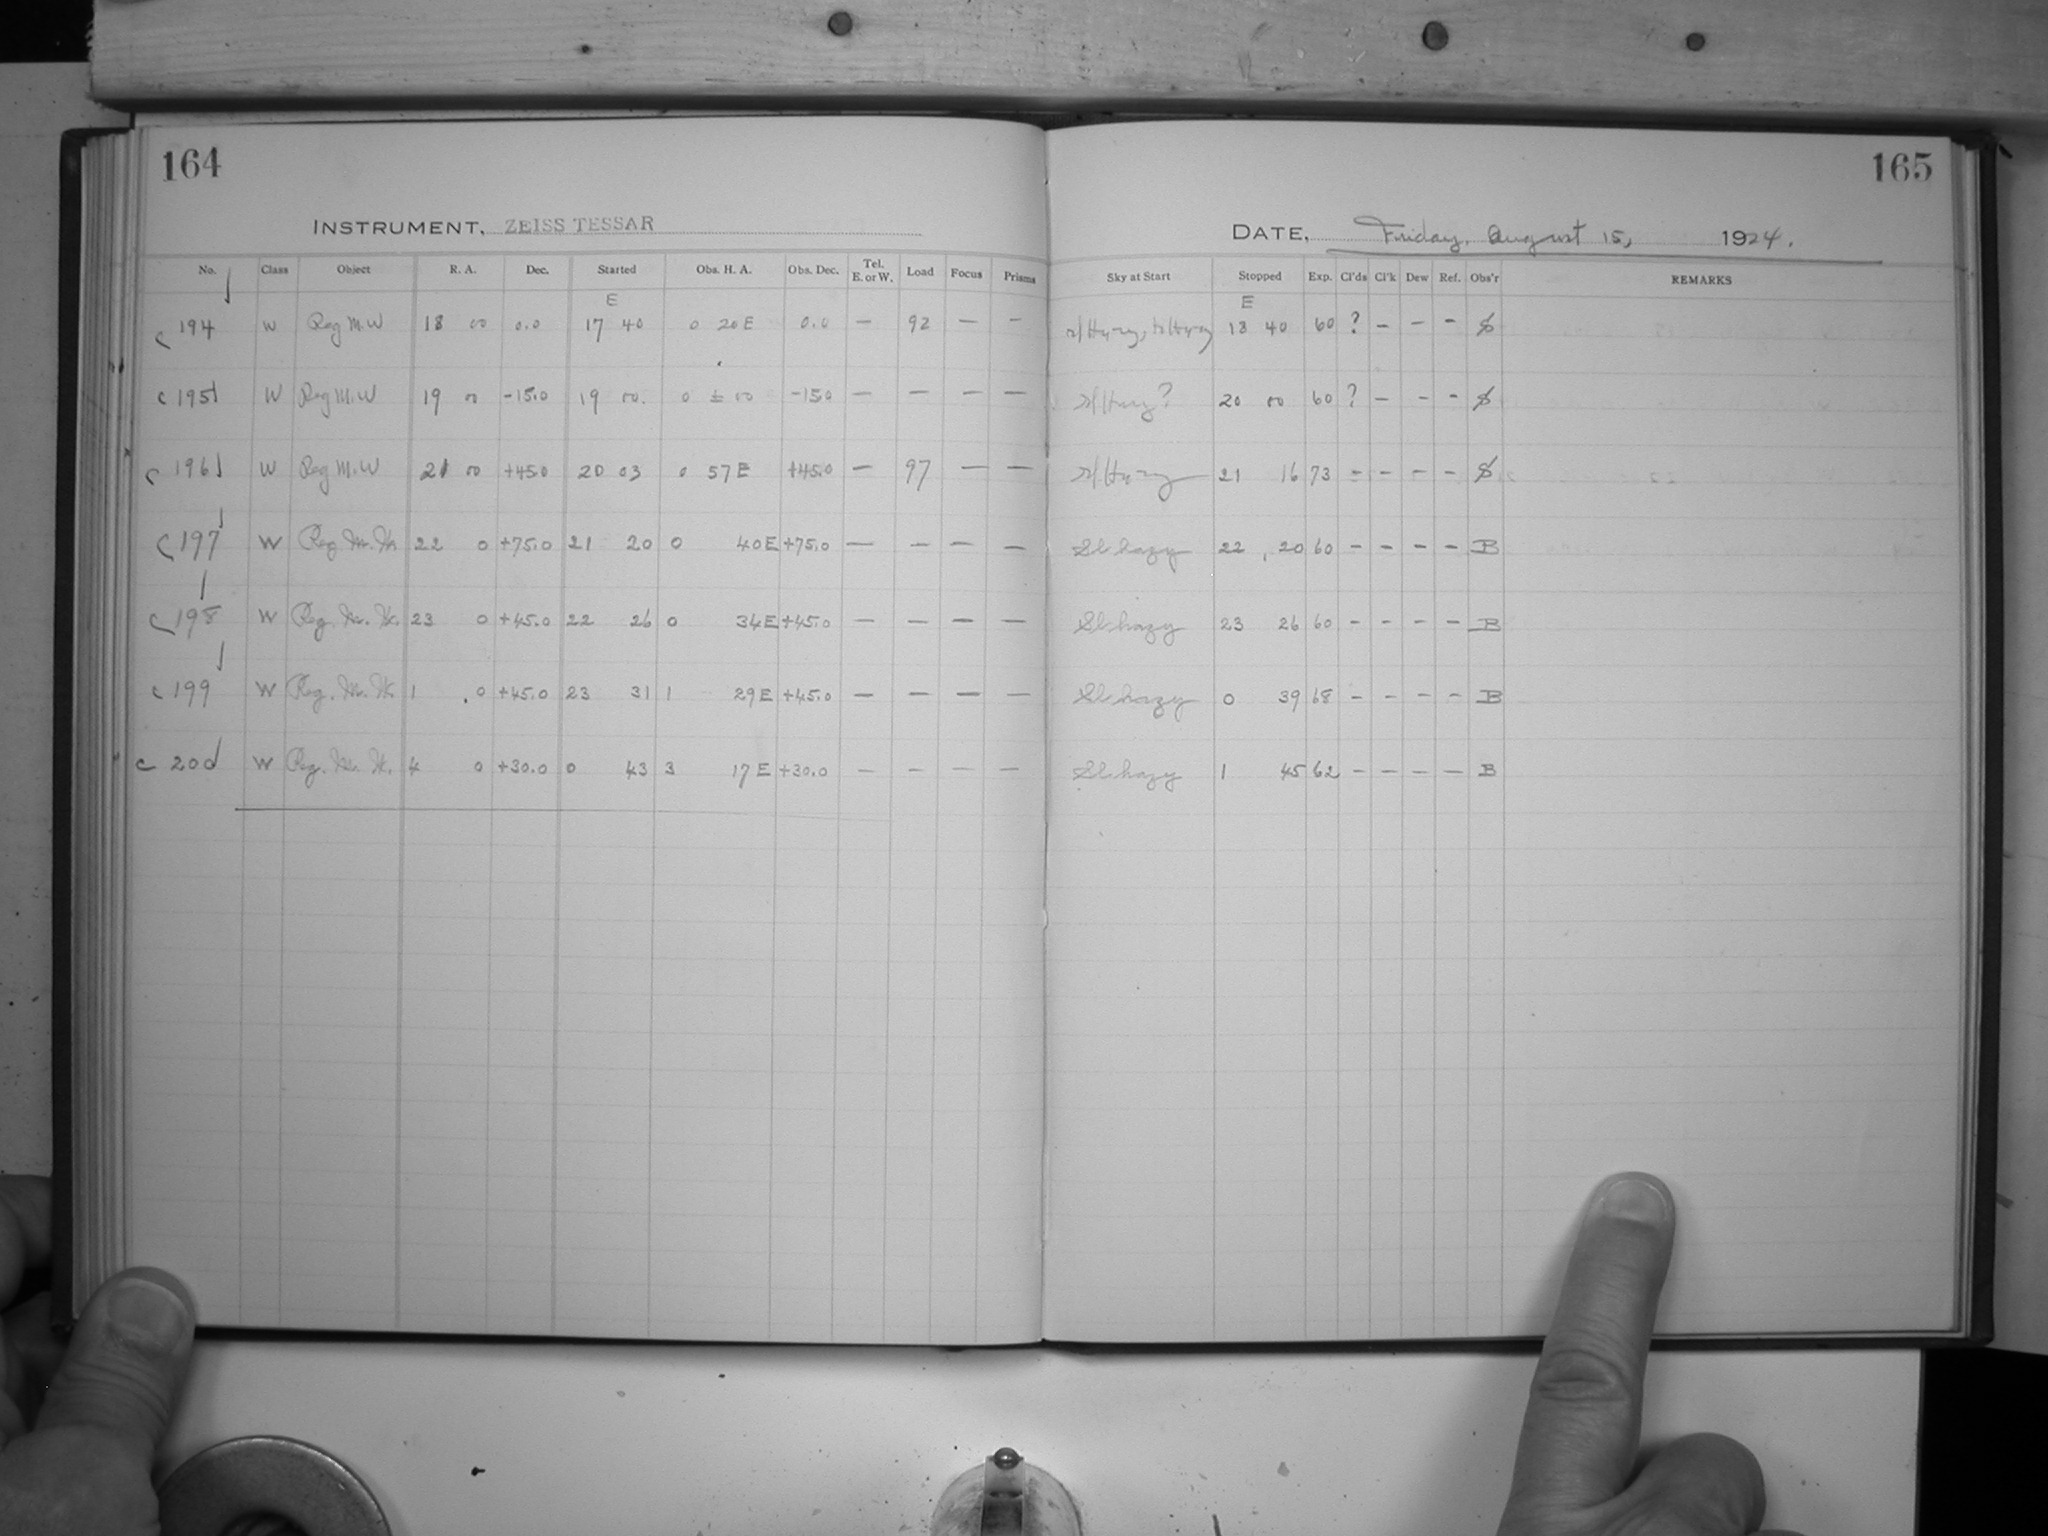 164
INSTRUMENT, ZEISS TESSAR
No. Class Object R. A. Dec. Started Obs. H. A. Obs. Dec. Tel. E. or W. Load Focus Prisms
E
c 194 W Reg M.W 18 00 0.0 17 40 0 20 E 0.0 — 92 — —
c 195 W Reg M.W 19 00 -15.0 19 00. 0 ± 00 -15.0 — — — —
c 196 W Reg M.W 21 00 +45.0 20 03 0 57 E +45.0 — 97 — —
c 197 W Reg. M. W. 22 0 +75.0 21 20 0 40 E +75.0 — — — —
c 198 W Reg. M. W. 23 0 +45.0 22 26 0 34 E +45.0 — — — —
c 199 W Reg. M. W. 1 0 +45.0 23 31 1 29 E +45.0 — — — —
c 200 W Reg. M. W. 4 0 +30.0 0 43 3 17 E +30.0 — — — —
165
DATE, Friday, August 15, 1924.
Sky at Start Stopped Exp. Cl'ds Cl'k Dew Ref. Obs'r REMARKS
E
18 40 60 ? — — —
sl Hazy? 20 00 60 ? — — —
sl Hazy 21 16 73 — — — —
Sl hazy 22 20 60 — — — — B
Sl hazy 23 26 60 — — — — B
Sl hazy 0 39 68 — — — — B
Sl hazy 1 45 62 — — — — B